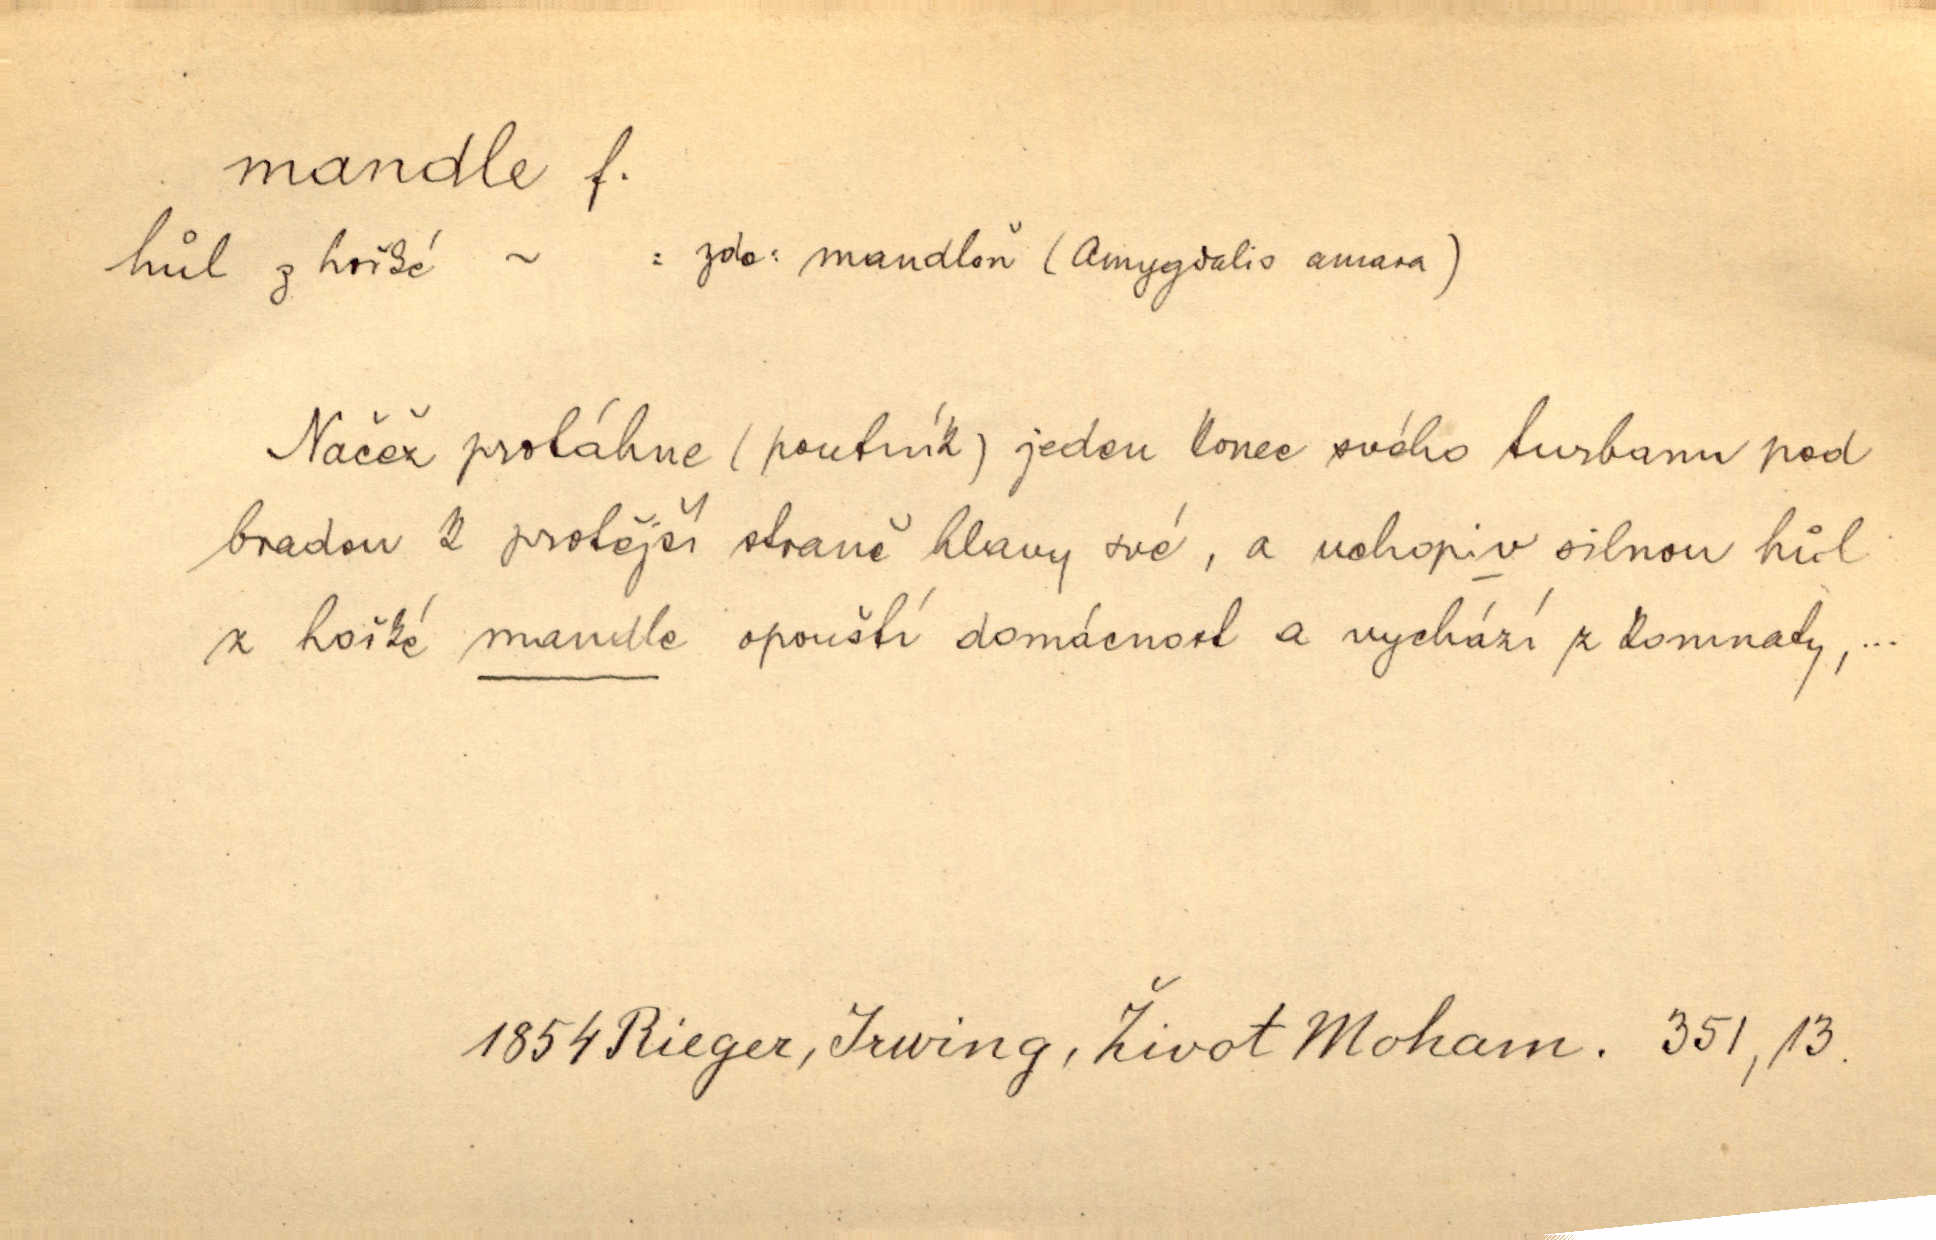 mandle f.
hůl z hořké ~ : zde: mandloň (Amygdalis amara)
Načež protáhne (poutník) jeden konec svého turbanu pod
bradou k protější straně hlavy své, a uchopiv silnou hůl
z hořké mandle opouští domácnost a vychází z komnaty, ...
1854 Rieger, Irwing, Život Moham. 351, 13.